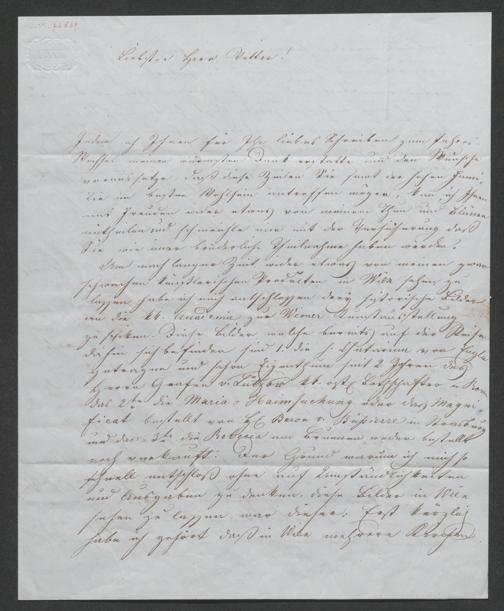 Liebster Herr Vetter!
Indem ich Ihnen für Ihr liebes Schreiben zum
meinen Dank erstatte und den Wünsche
voraussetze, daß diese Zeilen Sie samt der hohen Fami-
lie im besten Wohlsein antreffen mögen, kann ich Ihnen
mit Freuden wieder etwas von meinem Thun und
mittheilen und schmeichle mir mit der Versicherung daß
Sie wie immer Theilnahme haben werden.
Um nach langer Zeit wieder etwas von meinen zwar
schwachen künstlerischen Producten in Wien sehen zu
lassen habe ich mich entschlossen drey historische Bilder
an die kk. Academie zur Wiener Kunstausstellung
zu schicken. Diese Bilder welche bereits auf der Reise
dahin sich befinden sind 1. die h. Catharina von Engln
getragen und schon Eigenthum seit 2 Jahren des
Herrn Grafen v. Lützow kk. öst. Bothschafter in Rom
das 2te die Maria-Heimsuchung oder das Magni-
ficat bestellt von H. Baron v. in Strasburg
und das 3te die Rebecca am Brunnen weder bestellt
noch verkauft. Der Grund warum ich mich so
schnell entschloß ohne auf Umständlichkeiten
und Ausgaben zu denken diese Bilder in Wien
sehen zu lassen war dieser: Erst kürzlich
habe ich gehört daß in Wien mehrere